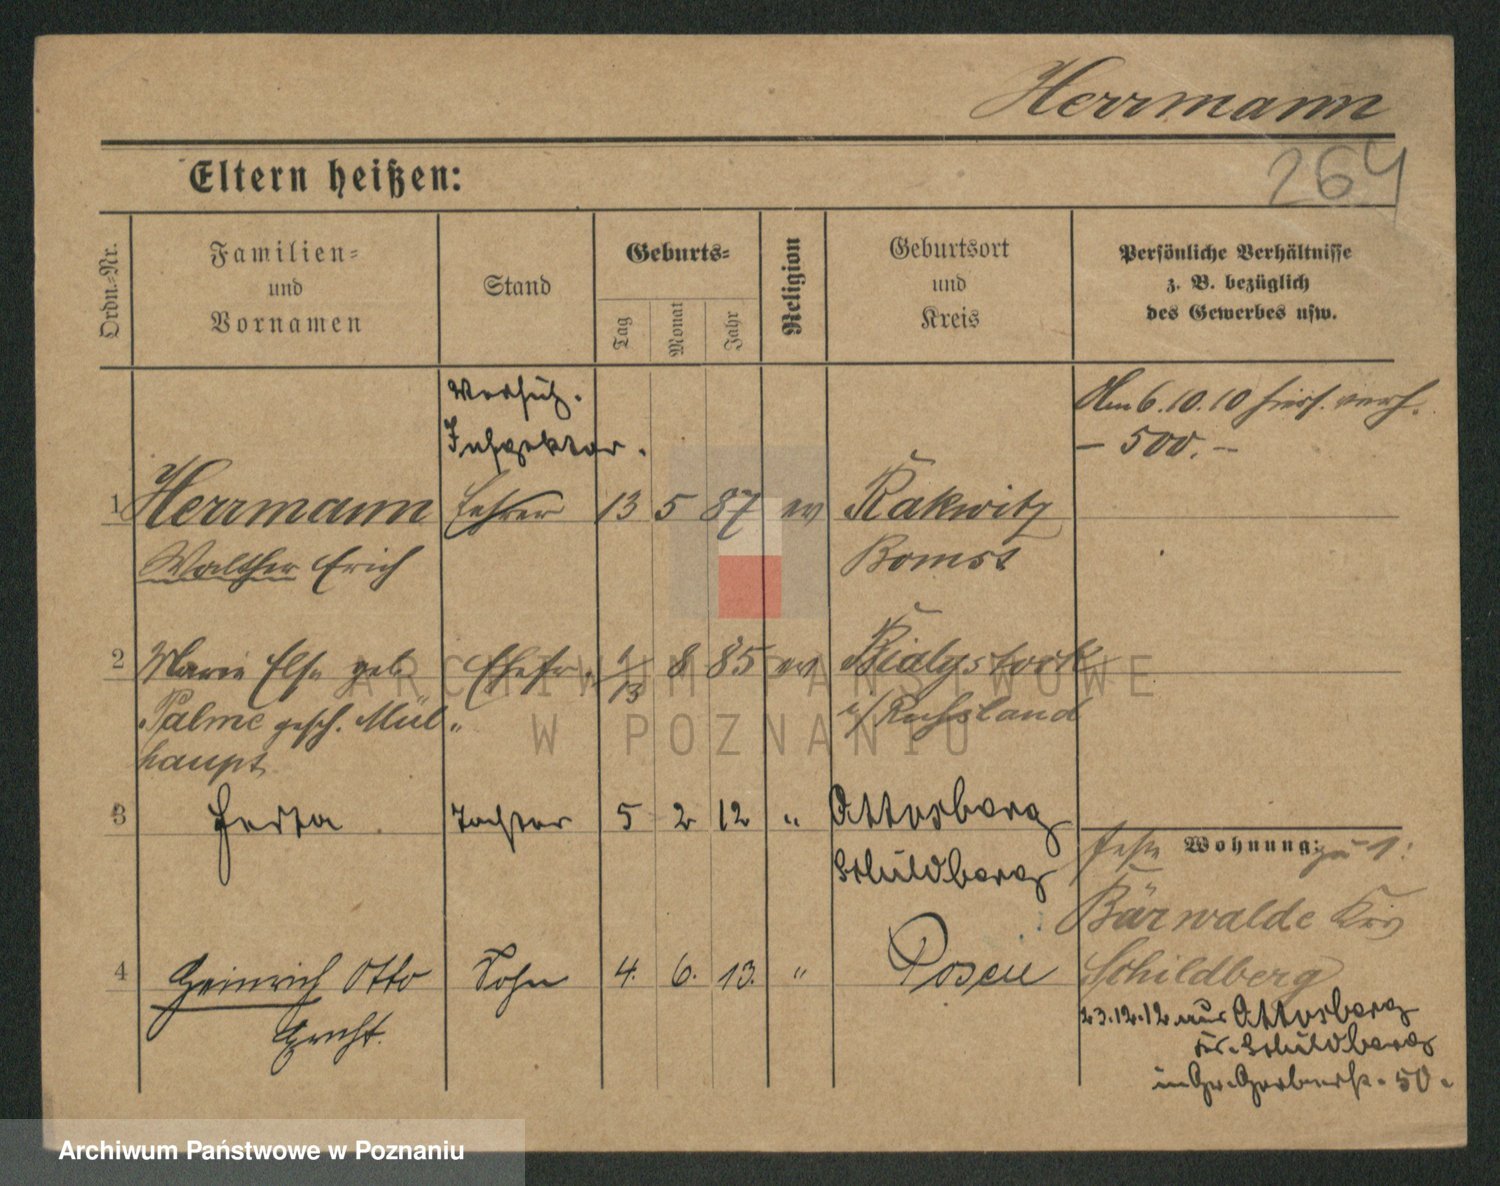 Herrmann
264
Eltern heißen:
Ordn.-Nr.
Familien-
und
Vornamen
Stand
Geburts-
Tag
Monat
Jahr
Religion
Geburtsort
und
Kreis
Persönliche Verhältnisse
z. B. bezüglich
des Gewerbes usw.
Am 6.10.10 hies. verh.
- 500. -
Versich.
Inspektor.
1 Herrmann Lehrer 13 5 87 ev Rakwitz
Walther Erich Bomst
2 Marie Else geb. Ehefr. 1/13 8 85 ev Bialystock
Palme gesch. Mül- i/Russland
haupt
3 Herta Tochter 5 2 12 " Ottosberg
Schildberg
feste Wohnung: zu 1:
Bärwalde Krs
4 Heinrich Otto Sohn 4. 6. 13. " Posen
Schildberg
23.12.12 aus Ottosberg
Kr. Schildberg
in Gr. Gerberstr. 50.
ARCHIWUM PAŃSTWOWE
W POZNANIU
Archiwum Państwowe w Poznaniu